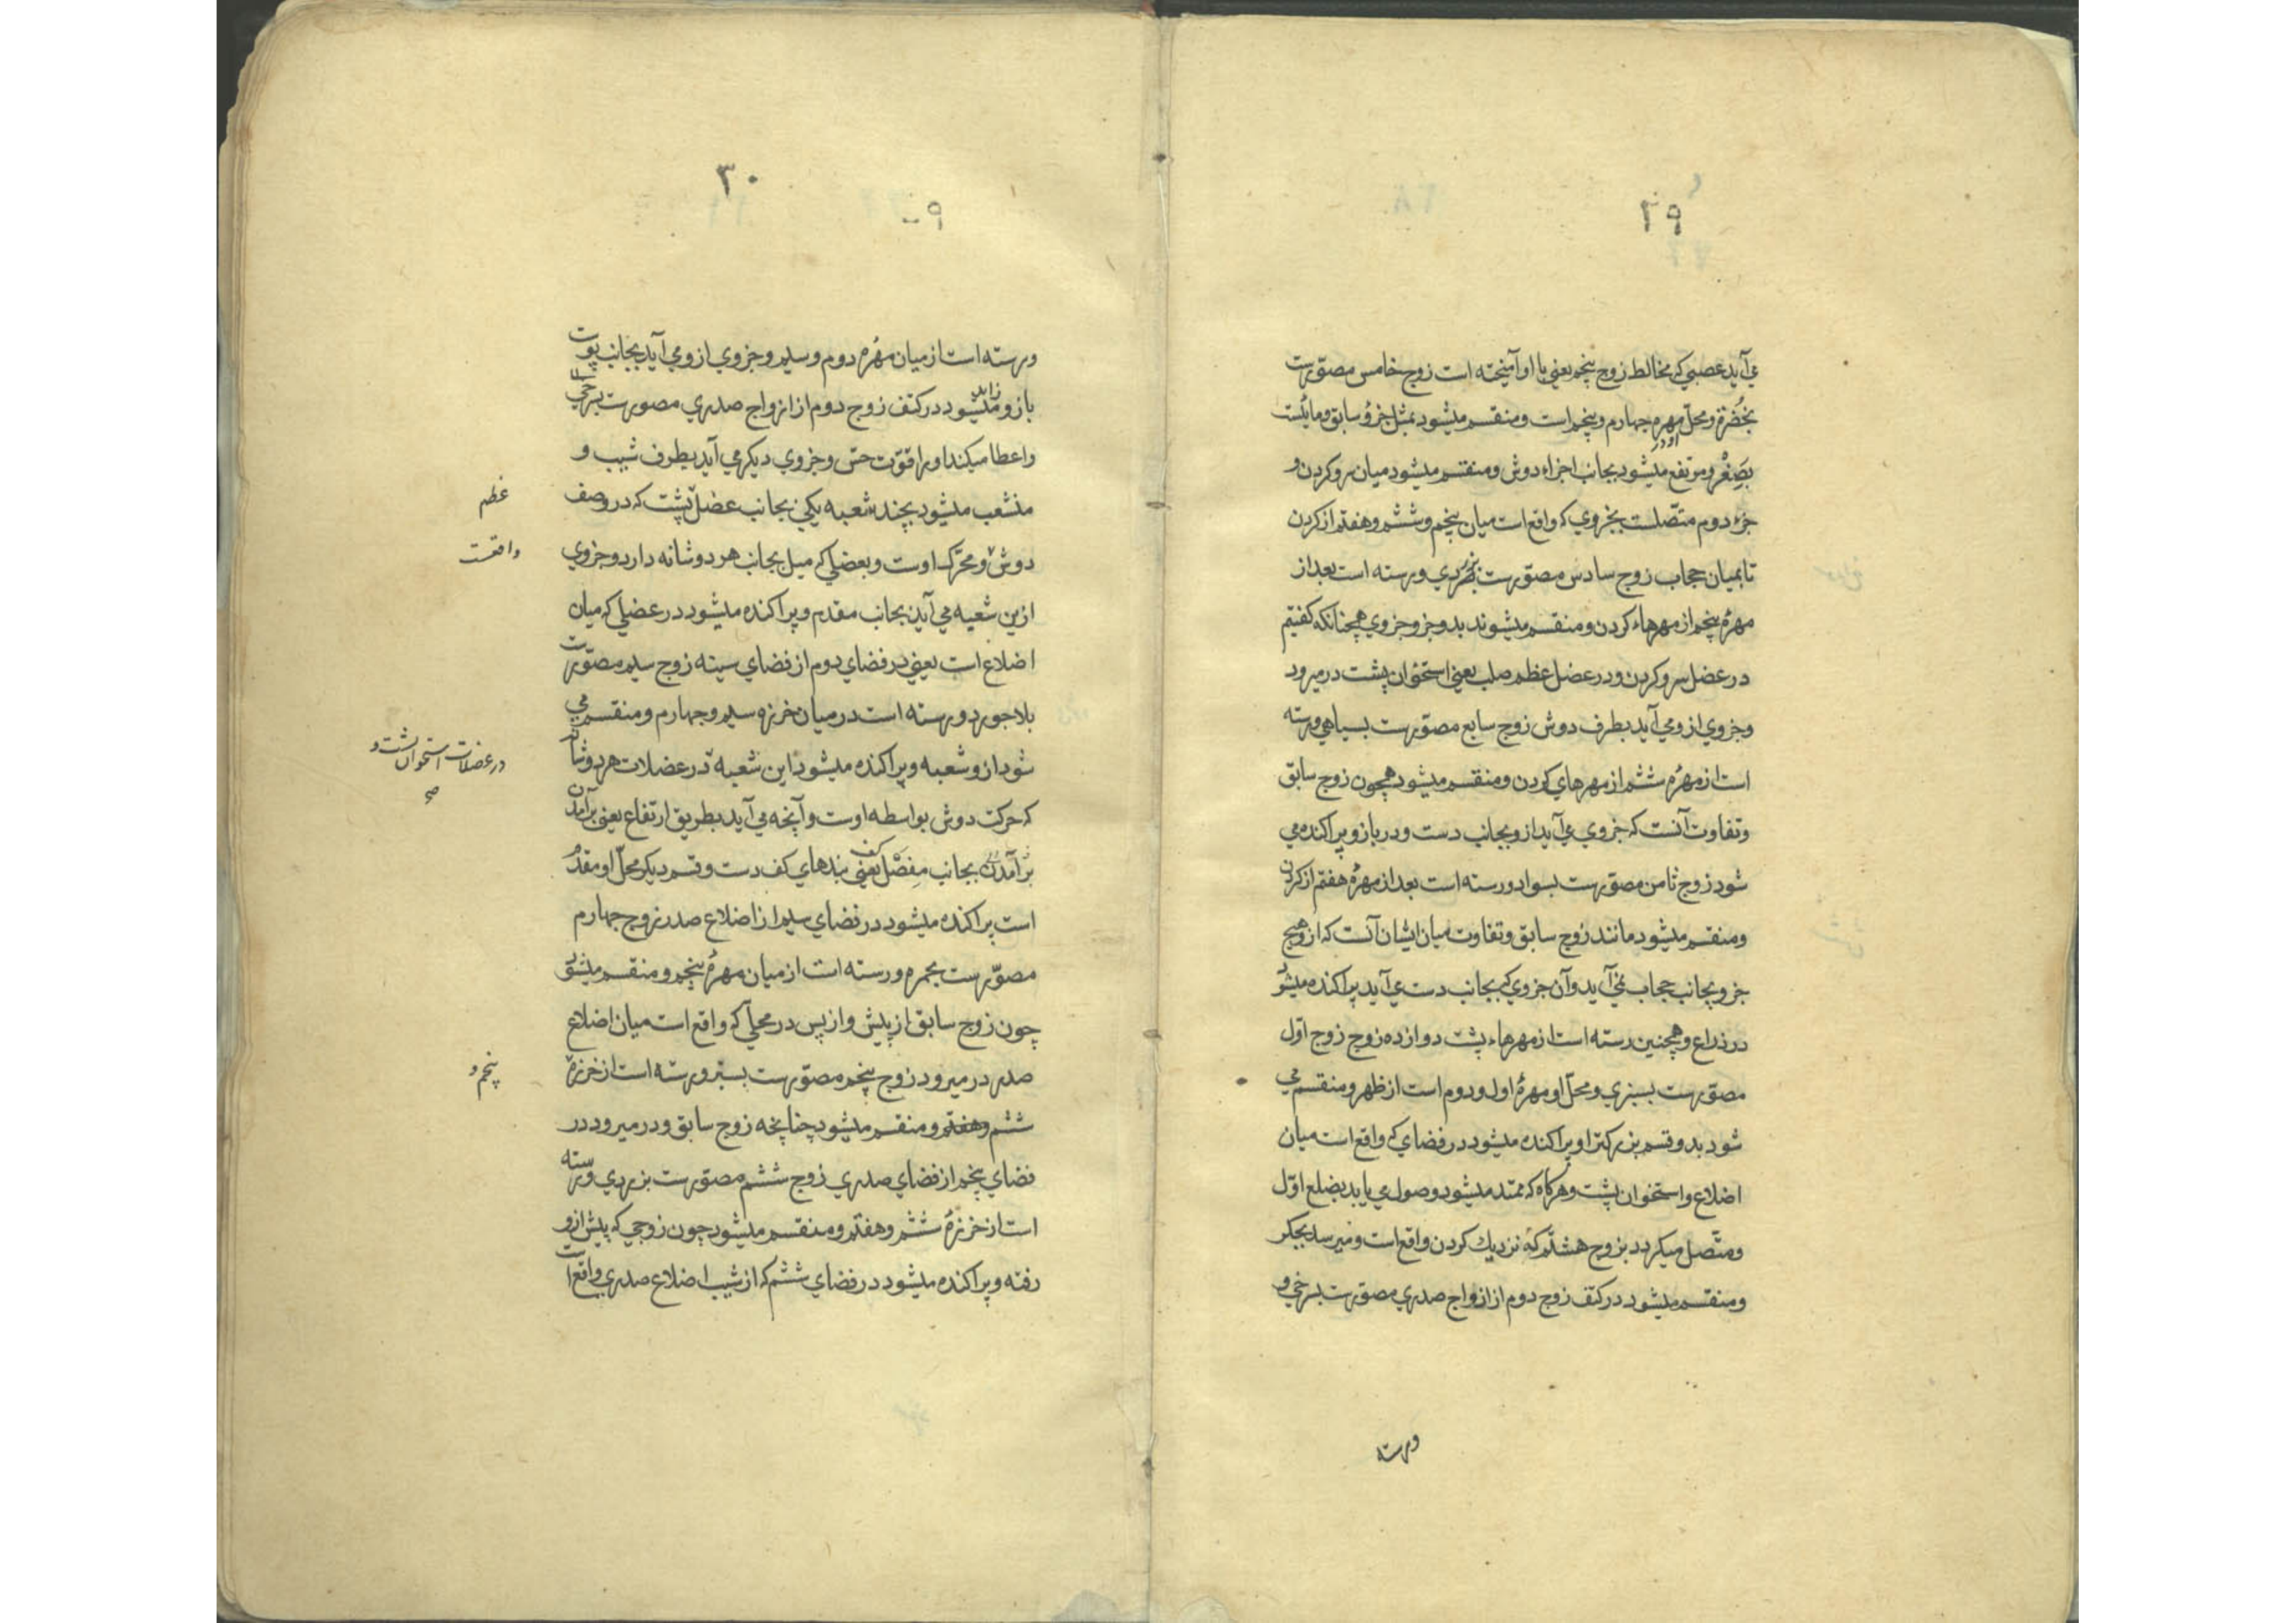 ۲۹
می آید عصبی که مخالط زوج پنجم یعنی با او آمیخته است زوج خامس مصوّرست
بخُضرة و محلّ مهره چهارم و پنجم است و منقسم میشود بمثل جزؤ سابق و مایلست
بصِغَر و مرتفع میشود بجانب اجزاء دوش و منقسم میشود میان سر و کردن و
جزء دوم متّصلست بجزوی که واقع است میان پنجم و ششم و هفتم از کردن
تا بمیان حجاب زوج سادس مصوّرست بزردی و رسته است بعد از
مهرهٔ پنجم از مهرهاء کردن و منقسم میشوند بدو جزو جزوی همچنانکه کفتیم
در عضل سر و کردن و در عضل عظم صلب یعنی استخوان پشت در میرود
و جزوی از و می آید بطرف دوش زوج سابع مصوّرست بسیاهی و رسته
است از مهرهٔ ششم از مهرهای کردن و منقسم میشود همچون زوج سابق
و تفاوت آنست که جزوی می آید از و بجانب دست و در بازو پراکنده می
شود زوج ثامن مصوّرست بسواد و رسته است بعد از مهرهٔ هفتم از کردن
و منقسم میشود مانند زوج سابق و تفاوت میان ایشان آنست که از و هیچ
جزو بجانب حجاب نمی آید و آن جزوی که بجانب دست می آید پراکنده میشود
در ذراع و همچنین رسته است از مهرهاء پشت دوازده زوج زوج اوّل
مصوّرست بسبزی و محلّ او مهرهٔ اول و دوم است از ظهر و منقسم می
شود بدو قسم بزرکتر او پراکنده میشود در فضای که واقع است میان
اضلاع و استخوان پشت و هرکاه که ممتد میشود وصول می یابد بضلع اوّل
و متّصل میکردد بزوج هشتم که نزدیك کردن واقع است و میرسد بجکر
و منقسم میشود در کتف زوج دوم از ازواج صدری مصوّرست بسرخی و
ورسته
۳۰
و رسته است از میان مهُرهٔ دوم و سیم و جزوی از و می آید بجانب پوست
بازو و زاید میشود در کتف زوج دوم از ازواج صدری مصورست بسرخی
و اعطا میکند او را قوّت حسّ و جزوی دیکر می آید بطرف شیب و
منشعب میشود بچند شعبه یکی بجانب عضل پشت که در وصف
عظم
دوش و محرّک اوست و بعضی که میل بجانب هر دو شانه دارد و جزوی
واقعست
ازین شعبه می آید بجانب مقدم و پراکنده میشود در عضلی که میان
اضلاع است یعنی در فضای دوم از فضای سینه زوج سیم مصوّرست
بلاجورد و رسته است در میان خرزه سیم و چهارم و منقسم می
شود از و شعبه و پراکنده میشود این شعبه در عضلات هر دو شانه
در عضلات استخوان پشت و
که حرکت دوش بواسطه اوست و آنچه می آید بطریق ارتفاع یعنی برآمدن
برآمدن بجانب مِفصَل کف یعنی بندهای کف دست و قسم دیکر محلّ او مقدّم
است پراکنده میشود در فضای سیم از اضلاع صدر زوج چهارم
مصوّرست بحمره و رسته است از میان مهرهٔ پنجم و منقسم میشود
چون زوج سابق از پیش و از پس در محلی که واقع است میان اضلاع
صدر در میرود زوج پنجم مصوّرست بسبز و رسته است از خرزهٔ
پنجم و
ششم و هفتم و منقسم میشود چنانچه زوج سابق و در میرود در
فضای پنجم از فضای صدری زوج ششم مصوّرست بزردی و رسته
است از خرزهٔ ششم و هفتم و منقسم میشود چون زوجی که پیش از و
رفته و پراکنده میشود در فضای ششم که از شیب اضلاع صدری واقع است